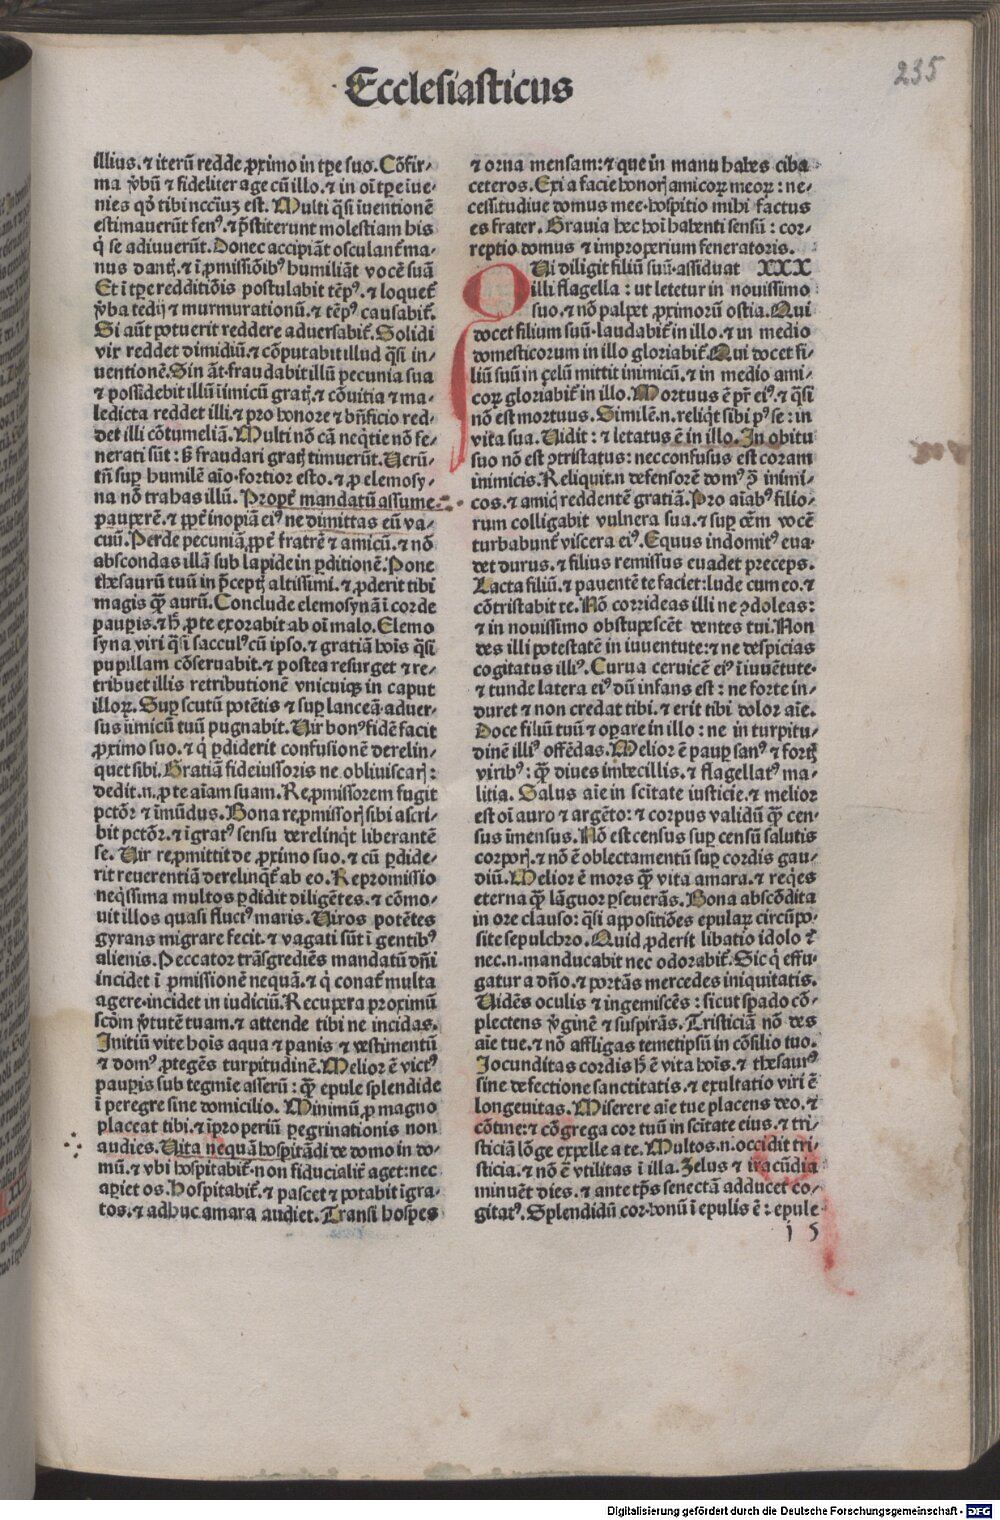 Ecclesiasticus
235
illius.⁊ iterũ redde ꝓximo in tꝑe suo. Cõfir-
ma ṽbũ ⁊ fideliter age cũ illo.⁊ in oĩ tꝑe ĩue-
nies qð tibi nccĩuȝ est. Multi q̃si ĩuentionẽ
estimauerũt fenꝰ.⁊ p̃stiterunt molestiam his
q̃ se adiuuerũt. Donec accipiãt osculant᷑ ma-
nus dantꝭ.⁊ ĩ ꝓmissiõibꝰ humiliãt vocẽ suã
Et ĩ tꝑe redditiõis postulabit tẽpꝰ.⁊ loquet᷑
ṽba tedij ⁊ murmurationũ.⁊ tẽpꝰ causabit᷑.
Si aũt potuerit reddere aduersabit᷑. Solidi
vix reddet dimidiũ.⁊ cõputabit illud q̃si in-
uentionẽ. Sin ãt. fraudabit illũ pecunia sua
⁊ possidebit illũ ĩimicũ gratꝭ.⁊ cõuitia ⁊ ma-
ledicta reddet illi.⁊ pro honore ⁊ bñficio red-
det illi cõtumeliã. Multi nõ cã neq̃tie nõ fe-
nerati sũt: sꝫ fraudari gratꝭ timuerũt. Uerũ-
tñ suꝑ humilẽ aĩo. fortior esto.⁊ ꝓ elemosy-
na nõ trahas illũ. Propt᷑ mandatũ assume
pauperẽ.⁊ ꝓpt᷑ inopiã eiꝰ ne dimittas eũ va-
cuũ. Perde pecuniã ꝓpt᷑ fratrẽ ⁊ amicũ.⁊ nõ
abscondas illã sub lapide in ꝑditionẽ. Pone
thesaurũ tuũ in p̃ceptꝭ altissimi.⁊ ꝓderit tibi
magis q̃ꝫ aurũ. Conclude elemosynã ĩ corde
pauꝑis.⁊ h̃ ꝓ te exorabit ab oĩ malo. Elemo
syna viri q̃si sacculꝰ cũ ipso.⁊ gratiã hoĩs q̃si
pupillam cõseruabit.⁊ postea resurget ⁊ re-
tribuet illis retributionẽ vnicuiqꝫ in caput
illoꝝ. Suꝑ scutũ potẽtis ⁊ suꝑ lanceã. aduer-
sus ĩimicũ tuũ pugnabit. Uir bonꝰ fidẽ facit
ꝓximo suo.⁊ q̃ ꝑdiderit confusionẽ derelin-
quet sibi. Gratiã fideiussoris ne obliuiscarꝭ:
dedit.n.ꝓ te aĩam suam. Reꝓmissorem fugit
pctõr ⁊ ĩmũdus. Bona reꝓmissorꝭ sibi ascri-
bit pctõr.⁊ ĩgratꝰ sensu derelinq̃t liberantẽ
se. Uir reꝓmittit de ꝓximo suo.⁊ cũ ꝑdide-
rit reuerentiã derelinq̃t᷑ ab eo. Repromissio
neq̃ssima multos ꝑdidit diligẽtes.⁊ cõmo-
uit illos quasi fluctꝰ maris. Uiros potẽtes
gyrans migrare fecit.⁊ vagati sũt ĩ gentibꝰ
alienis. Peccator trãsgrediẽs mandatũ dñi
incidet ĩ ꝓmissionẽ nequã.⁊ q̃ conat᷑ multa
agere. incidet in iudiciũ. Recupera proximũ
scõm ṽtutẽ tuam.⁊ attende tibi ne incidas.
Initiũ vite hoĩs aqua ⁊ panis ⁊ vestimentũ
⁊ domꝰ ꝓtegẽs turpitudinẽ. Melior ẽ victꝰ
pauꝑis sub tegmĩe asserũ: q̃ꝫ epule splendide
ĩ peregre sine domicilio. Minimũ ꝓ magno
placeat tibi.⁊ ĩproperiũ ꝑegrinationis non
audies. Uita nequã hospitãdi de domo in do-
mũ.⁊ vbi hospitabit᷑. non fiducialit᷑ aget: nec
aꝑiet os. Hospitabit᷑.⁊ pascet ⁊ potabit ĩgra-
tos.⁊ adhuc amara audiet. Transi hospes
⁊ orna mensam: ⁊ que in manu habes ciba
ceteros. Exi a facie honorꝭ amicoꝝ meoꝝ: ne-
cessitudiue domus mee. hospitio mihi factus
es frater. Grauia hec hoĩ habenti sensũ: cor-
reptio domus ⁊ improperium feneratoris.
QUi diligit filiũ suũ. assiduat XXX
illi flagella: ut letetur in nouissimo
suo.⁊ nõ palpet ꝓximorũ ostia. Qui
docet filium suũ. laudabit᷑ in illo.⁊ in medio
domesticorum in illo gloriabit᷑. Qui docet fi-
liũ suũ in çelũ mittit inimicũ.⁊ in medio ami-
coꝝ gloriabit᷑ in illo. Mortuus ẽ pr̃ eiꝰ.⁊ q̃si
nõ est mortuus. Similẽ.n.reliq̃t sibi pꝰ se: in
vita sua. Uidit: ⁊ letatus ẽ in illo. In obitu
suo nõ est ꝯtristatus: nec confusus est coram
inimicis. Reliquit.n defensorẽ domꝰ ꝯ̃ inimi-
cos.⁊ amicꝭ reddentẽ gratiã. Pro aĩabꝰ filio-
rum colligabit vulnera sua.⁊ suꝑ oẽm vocẽ
turbabunt᷑ viscera eiꝰ. Equus indomitꝰ eua-
det durus.⁊ filius remissus euadet preceps.
Lacta filiũ.⁊ pauentẽ te faciet: lude cum eo.⁊
cõtristabit te. Nõ corrideas illi ne ꝯdoleas:
⁊ in nouissimo obstupescẽt dentes tui. Non
des illi potestatẽ in iuuentute: ⁊ ne despicias
cogitatus illiꝰ. Curua ceruicẽ eiꝰ ĩ iuuẽtute.
⁊ tunde latera eiꝰ dũ infans est: ne forte in-
duret ⁊ non credat tibi.⁊ erit tibi dolor aĩe.
Doce filiũ tuũ ⁊ oꝑare in illo: ne in turpitu-
dinẽ illiꝰ offẽdas. Melior ẽ pauꝑ sanꝰ ⁊ fortꝭ
viribꝰ: q̃ꝫ diues imbecillis.⁊ flagellatꝰ ma-
litia. Salus aĩe in scĩtate iusticie.⁊ melior
est oĩ auro ⁊ argẽto: ⁊ corpus validũ q̃ꝫ cen-
sus ĩmensus. Nõ est census suꝑ censũ salutis
corporꝭ.⁊ nõ ẽ oblectamentũ suꝑ cordis gau-
diũ. Melior ẽ mors q̃ꝫ vita amara.⁊ req̃es
eterna q̃ꝫ lãguor ꝑseuerãs. Bona abscõdita
in ore clauso: q̃si appositiões epulaꝝ circũpo-
site sepulchro. Quid ꝓderit libatio idolo?
nec.n.manducabit nec odorabit᷑. Sic q̃ effu-
gatur a dño.⁊ portãs mercedes iniquitatis.
Uidẽs oculis ⁊ ingemiscẽs: sicut spado cõ-
plectens ṽginẽ ⁊ suspirãs. Tristiciã nõ des
aĩe tue.⁊ nõ affligas temetipsũ in cõsilio tuo.
Iocunditas cordis h̃ ẽ vita hoĩs.⁊ thesaurꝰ
sine defectione sanctitatis.⁊ exultatio viri ẽ
longeuitas. Miserere aĩe tue placens deo.⁊
cõtine: ⁊ cõgrega cor tuũ in scĩtate eius.⁊ tri-
sticiã lõge expelle a te. Multos.n.occidit tri-
sticia.⁊ nõ ẽ vtilitas ĩ illa. Zelus ⁊ iracũdia
minuẽt dies.⁊ ante tp̃s senectã adducet co-
gitatꝰ. Splendidũ cor. bonũ ĩ epulis ẽ: epule
i 5
Digitalisierung gefördert durch die Deutsche Forschungsgemeinschaft - DFG